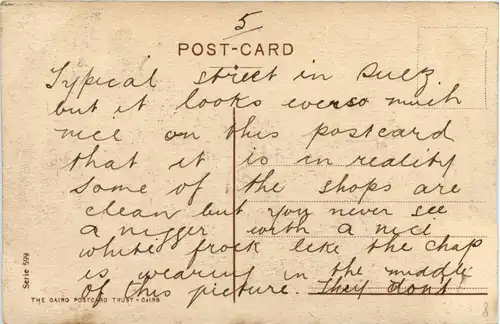 5
POST-CARD
Typical street in Suez
but it looks ever so much
nice on this postcard
that it is in reality
Some of the shops are
clean but you never see
a nigger with a nice
white frock like the chap
is wearing in the middle
of this picture. They dont
Serie 599
THE CAIRO POSTCARD TRUST - CAIRO
8